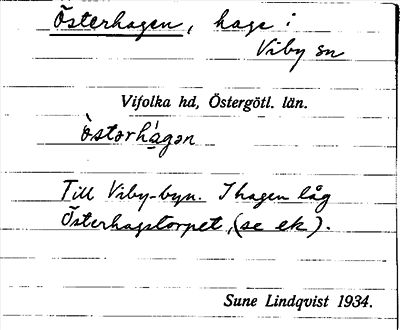 Österhagen, hage i
Viby sn
Vifolka hd, Östergötl. län.
ò̀starhá̱gən
Till Viby-byn. I hagen låg
Österhagstorpet, (se ek).
Sune Lindqvist 1934.